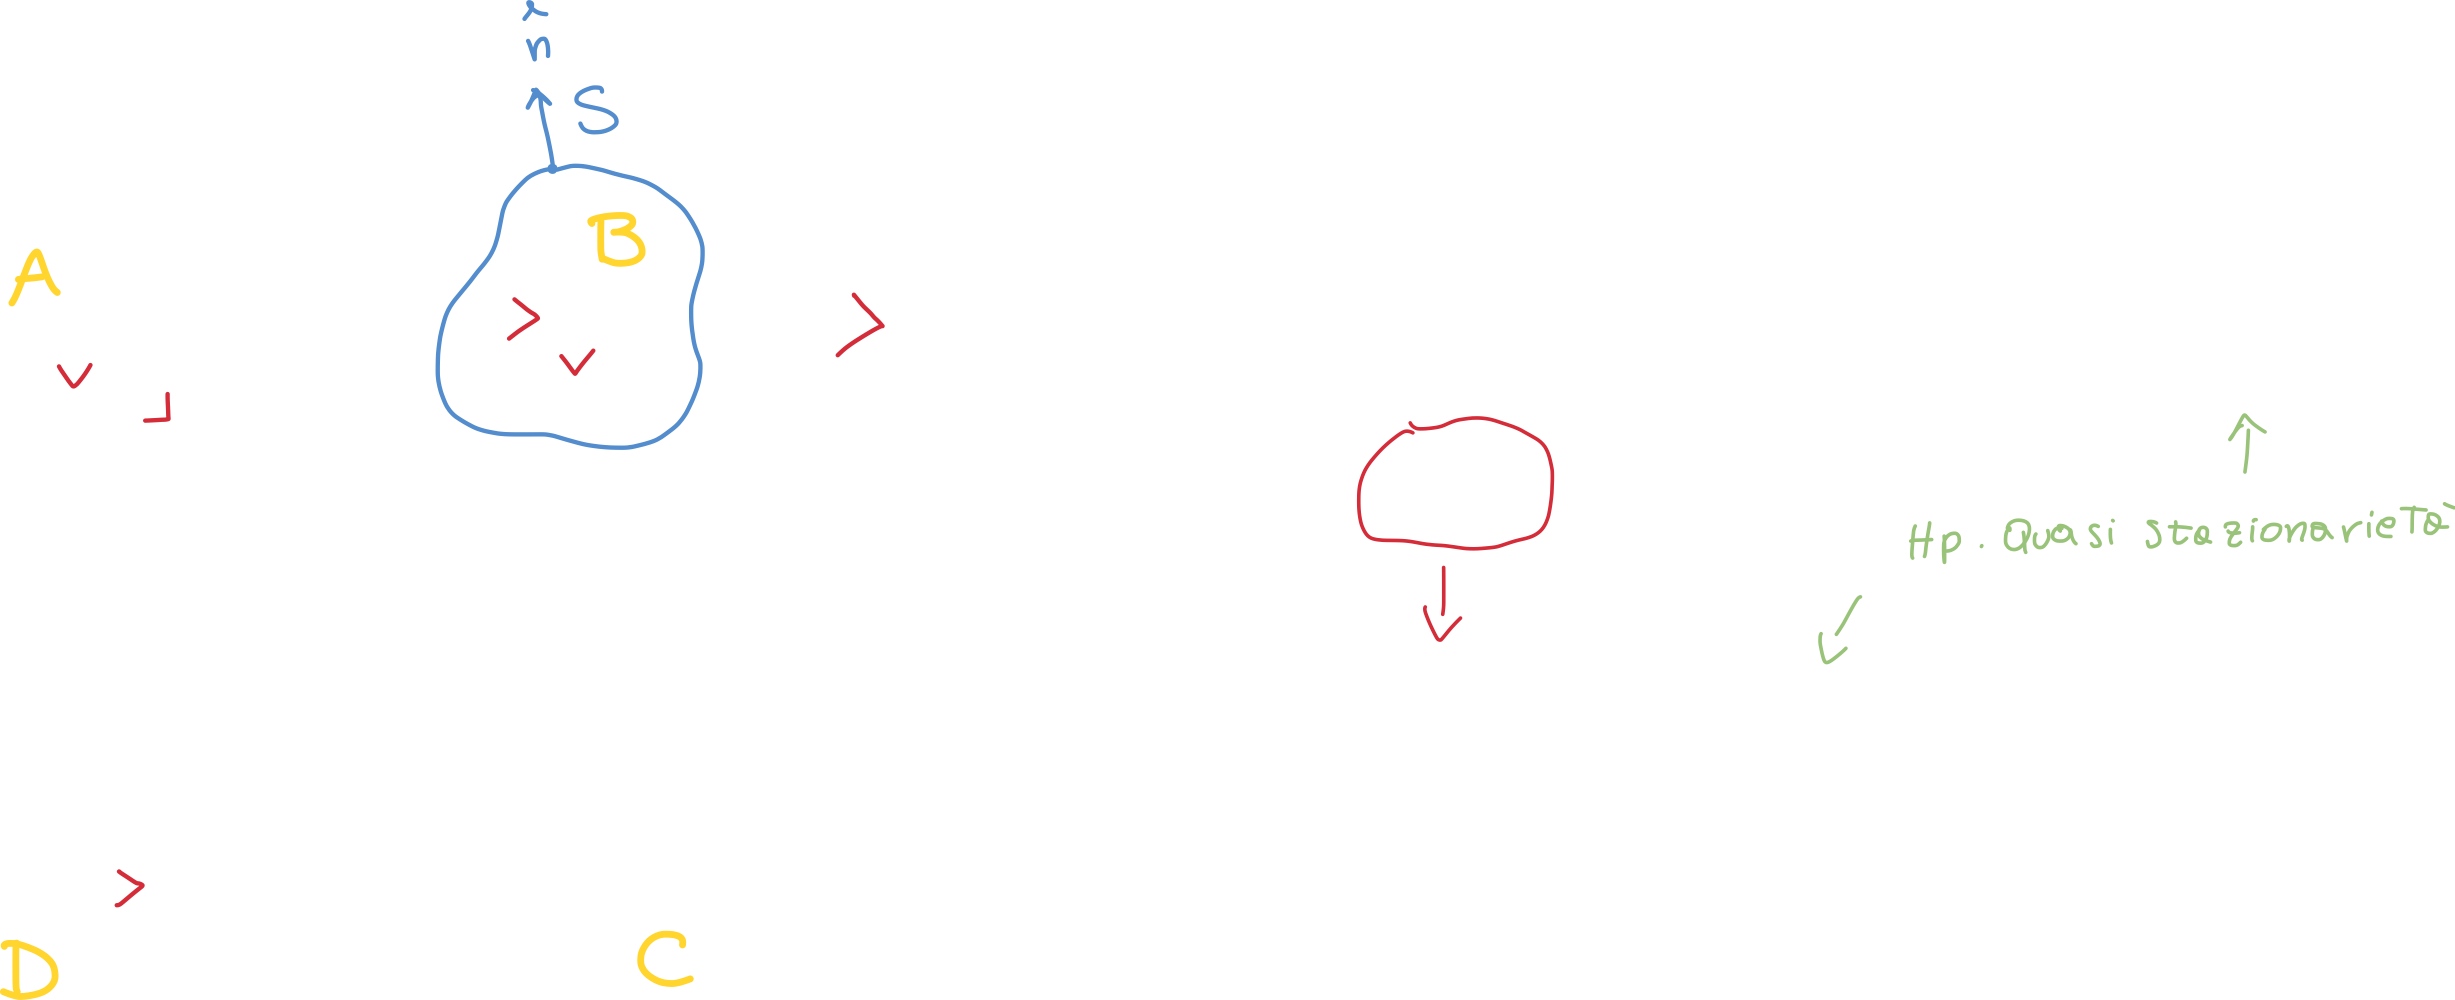 n
S
B
A
Hp. Quasi StazionarieTà
D
C